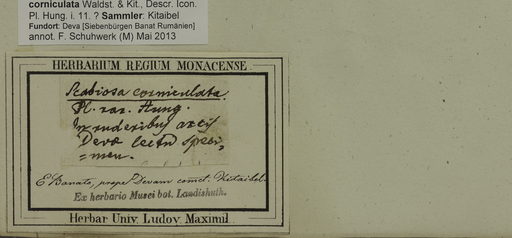 corniculata Waldst. & Kit., Descr. Icon.
Pl. Hung. i. 11. ? Sammler: Kitaibel
Fundort: Deva [Siebenbürgen Banat Rumänien]
annot. F. Schuhwerk (M) Mai 2013
HERBARIUM REGIUM MONACENSE.
Scabiosa corniculata.
Pl. rar. Hung.
In ruderibus arcis
Deva lectu speci=
=men.
E Banatu, prope Devam comct. Kitaibel.
Ex herbario Musei bot. Landishuth.
Herbar Univ. Ludov. Maximil.